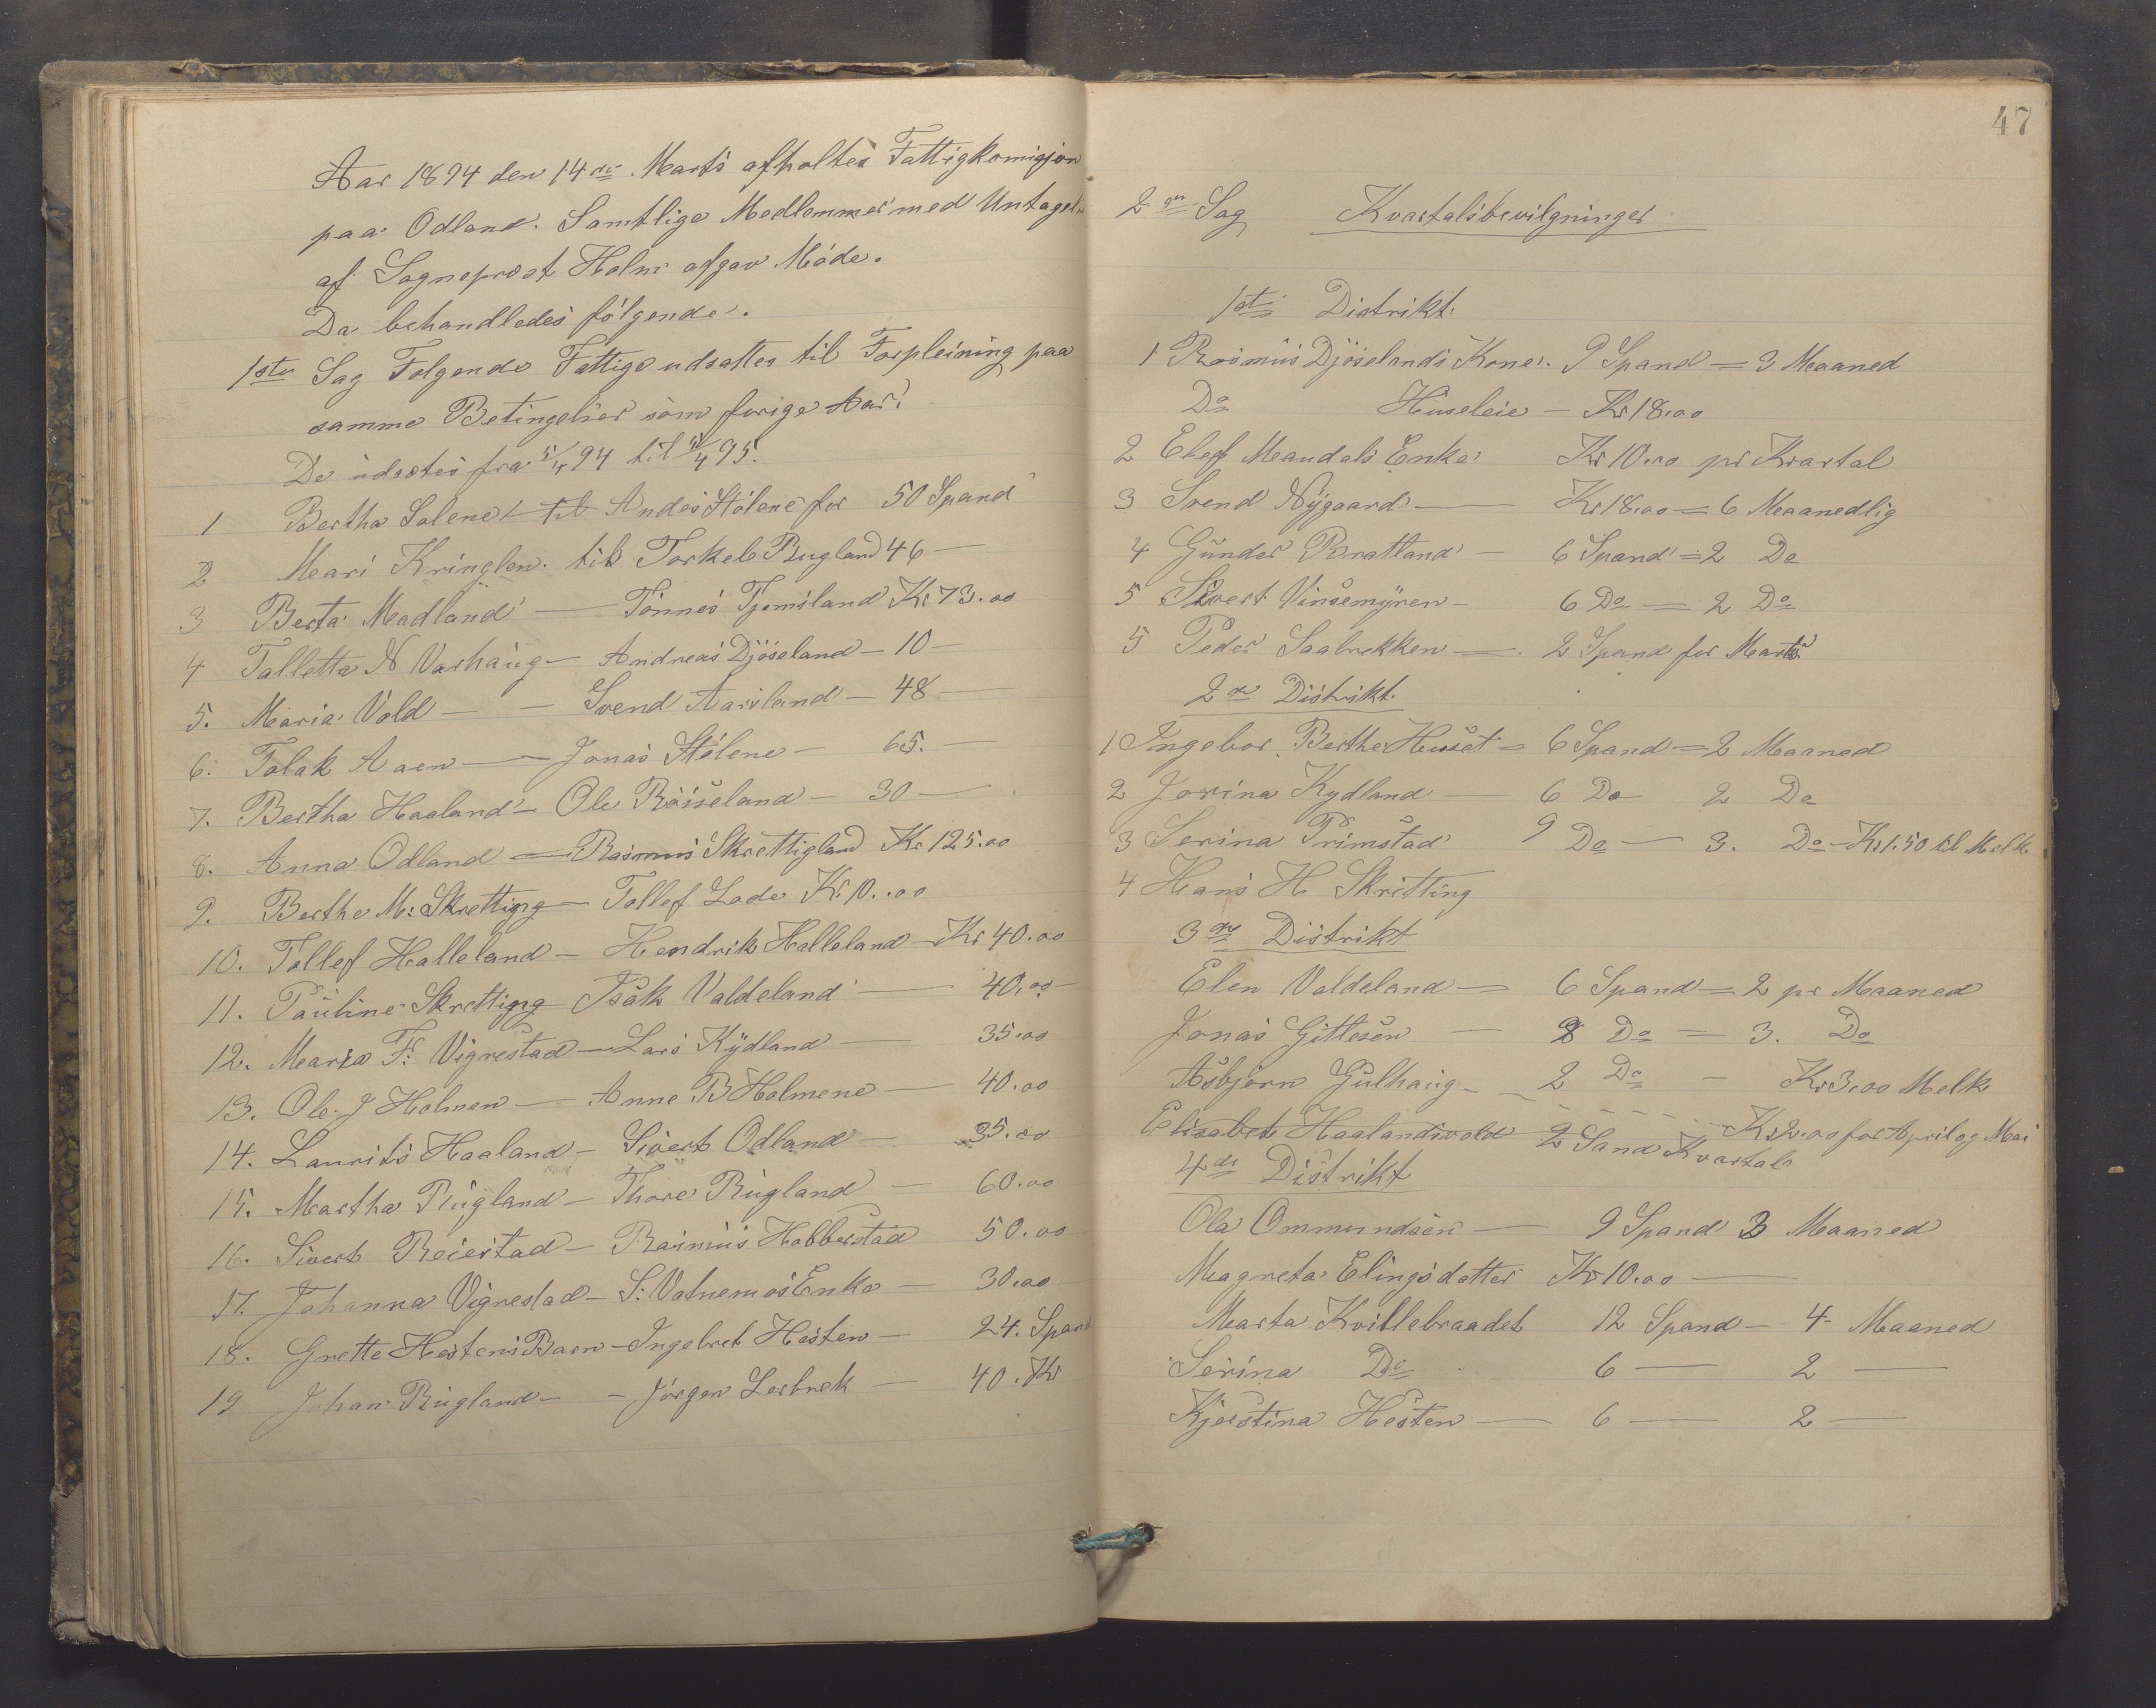 Aar 1894 den 14de Marts afholtes Fattigkomisjon
paa Odland. Samtlige Medlemmer med Untagels
af Sogneprest Holm afgav Möde.
Da behandledes fölgende.
1ste Sag Følgende Fattige udsattes til Forpleining paa
samme Betingelser som forige Aar.
De udsætes fra 5/4 94 til 5/4 95.
1 Bertha Solene til Andes Stölene for 50 Spand
2 Mari Kringlen til Torkel Rugland 46 —
3 Berta Madland — Tönnes Tjemsland Kr 73.00
4 Talletta N Varhaug — Andreas Djöseland — 10 —
5. Maria Vold — — Svend Aarsland — 48 —
6. Tolak Aaen — Jonas Stölene — 65. —
7. Bertha Haaland — Ole Röiseland — 30 —
8. Anna Odland — Rasmus Skrettigland Kr 125.00
9. Berthe M. Skretting — Tollef Lode Kr 10.00
10. Tollef Halleland — Hendrik Halleland — Kr 40.00
11. Pauline Skretting Isak Valdeland — 40.00
12. Maria F. Vigrestad — Lars Kydland — 35.00
13. Ole J Holmen — Anne B Holmene — 40.00
14. Laurits Haaland — Sivert Odland — 35.00
15. Martha Rugland — Thore Rugland — 60.00
16. Sivert Reiestad — Rasmus Hobberstad 50.00
17. Johanna Vigrestad — S. Vatnemos Enke — 30.00
18. Grette Hestens Barn — Ingebret Hesten — 24. Spand
19 Johan Rugland — — Jörgen Lerbrek — 40. Kr
47
2den Sag Kvartalsbevilgninger
1ste Distrikt.
1 Rasmus Djöselands Kone. 9 Spand = 3 Maaned
Do Huseleie — Kr 18.00
2 Elef Maudals Enke Kr 10.00 pr Kvartal
3 Svend Nygaard — Kr 18.00 = 6 Maanedlig
4 Gunder Bratland — 6 Spand = 2 Do
5 Sivert Vinsemyren — 6 Do — 2 Do
5 Peder Saabrekken — 2 Spand for Marts
2det Distrikt.
1 Ingebor Berthe Huset = 6 Spand = 2 Maaned
2 Jorina Kydland — 6 Do 2 Do
3 Serina Primstad 9 Do — 3. Do — Kr 1.50 til Melk
4 Hans H Skretting
3die Distrikt
Elen Valdeland — 6 Spand = 2 pr Maaned
Jonas Gitlesen — 8 Do = 3. Do
Asbjörn Gulhaug — 2 Do — Kr 3.00 Melk
Kr 2.00 for April og Mai
Elisabet Haalandsvold 2 Sand Kvartal
4de Distrikt
Ola Ommundsen — 9 Spand 3 Maaned
Magreta Elingsdatter Kr 10.00 —
Marta Kvitlebraadet 12 Spand — 4 Maaned
Serina Do 6 — 2 —
Kjerstina Hesten — 6 — 2 —